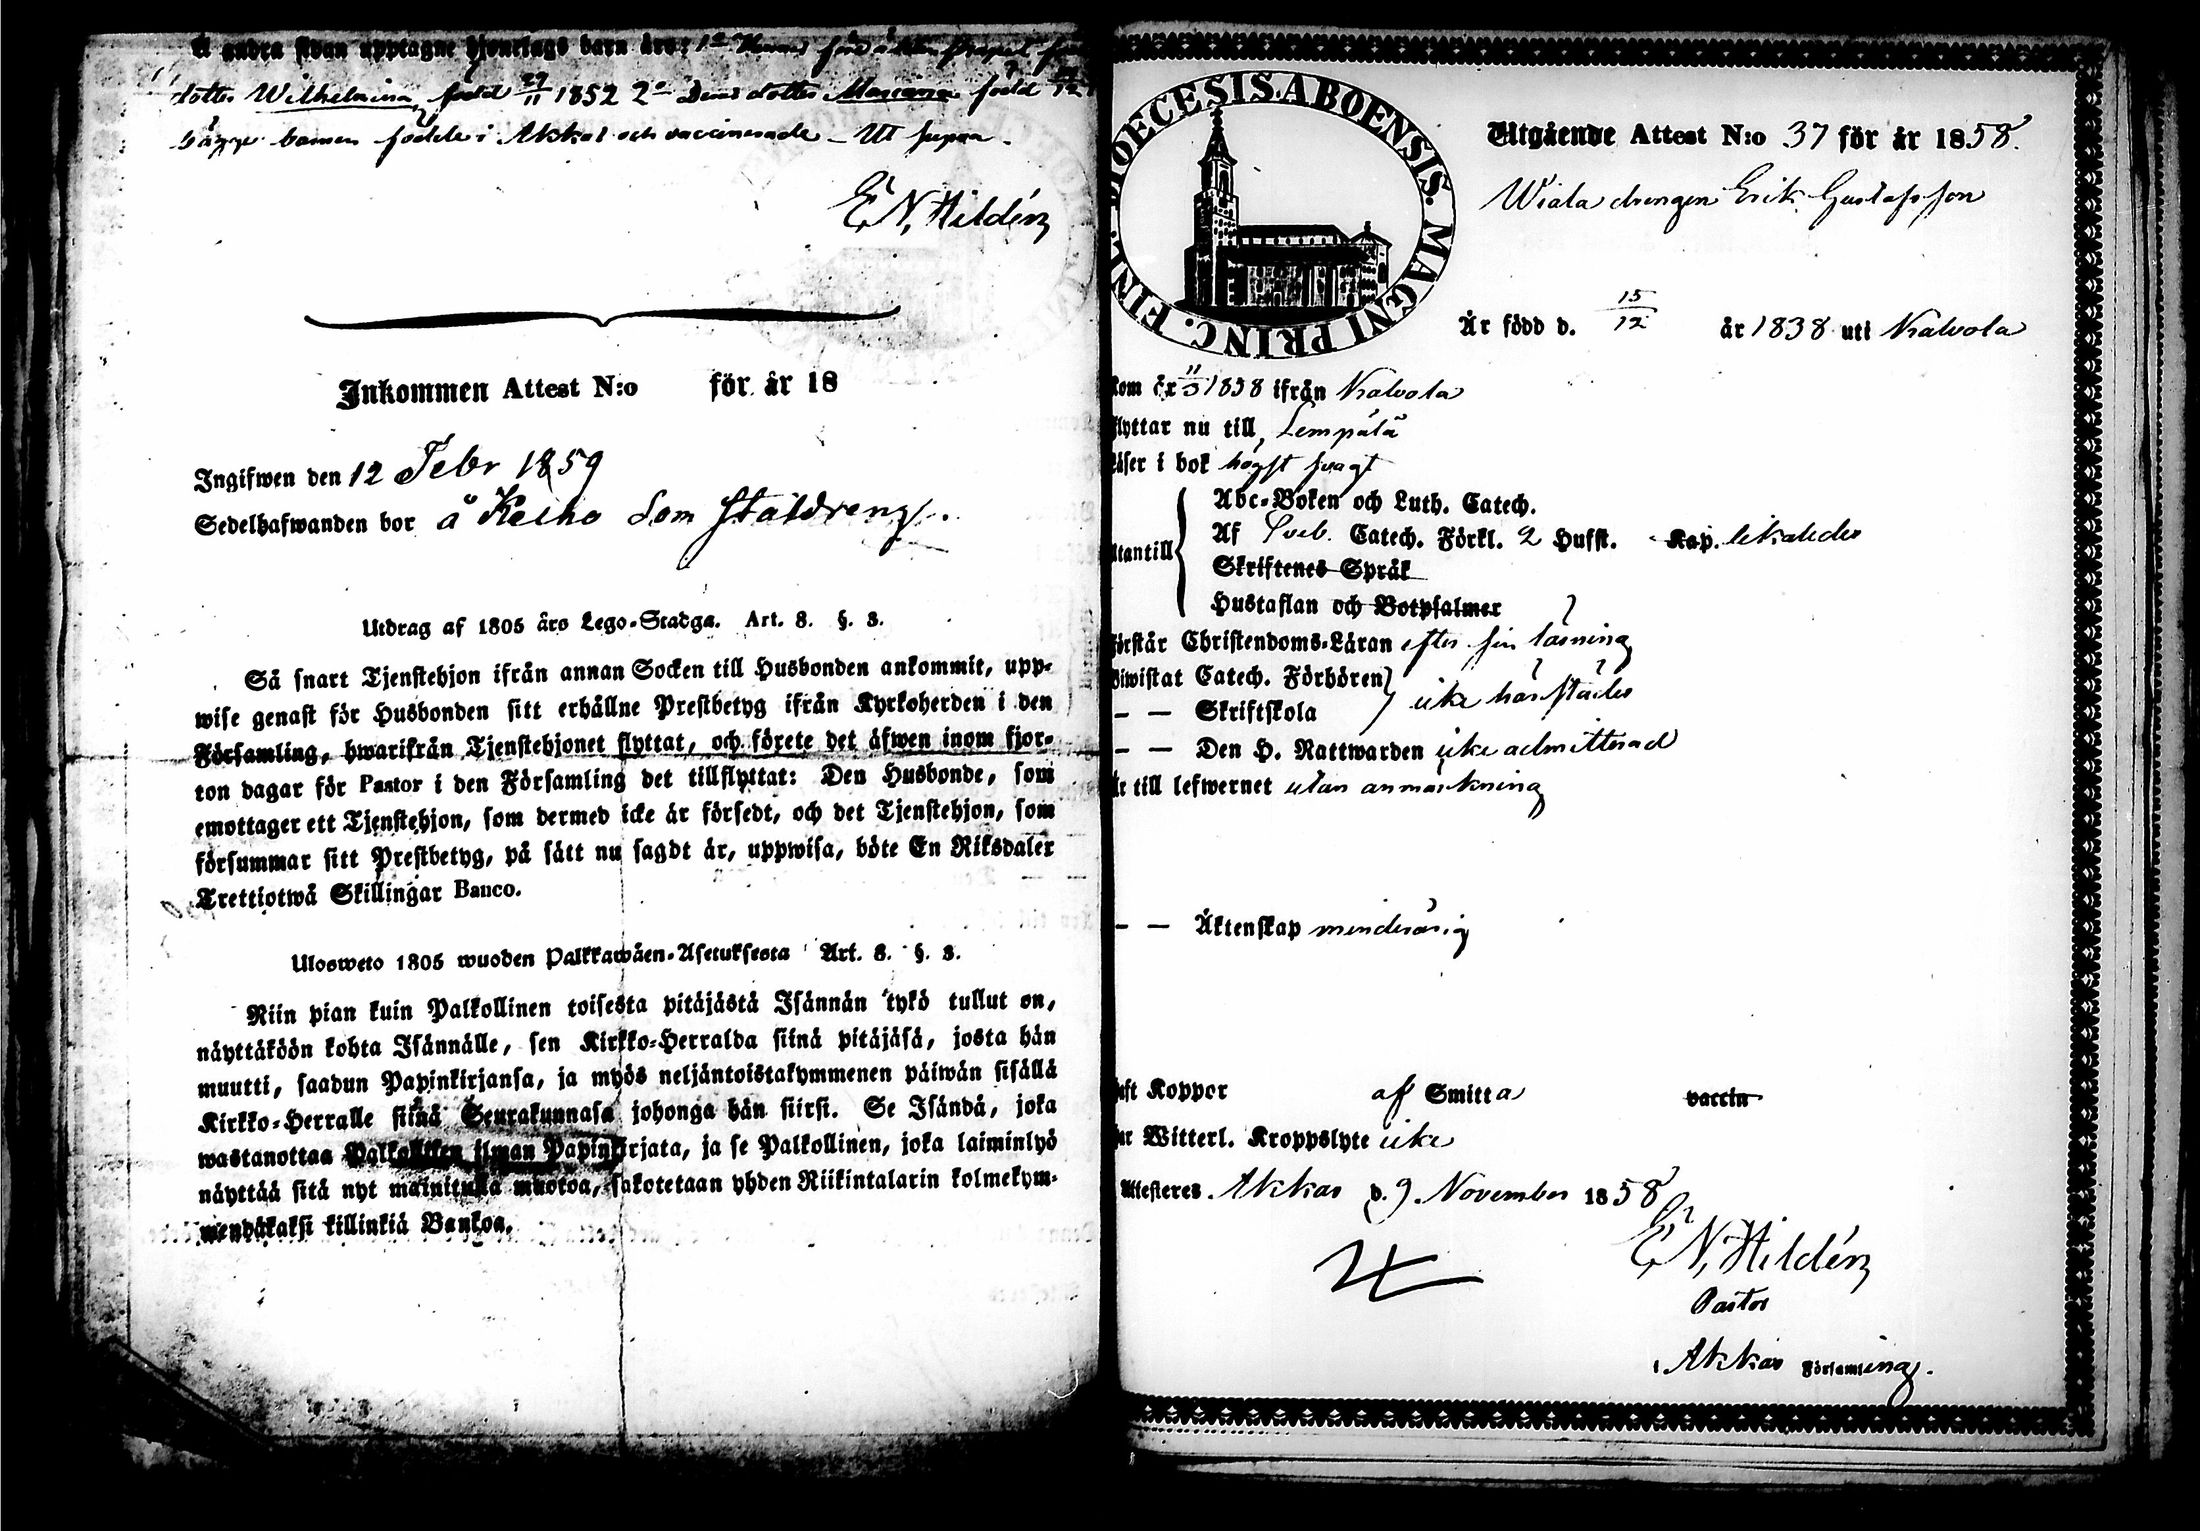 å andra sidan upptagne hjonelags barn äro: 1o Hennes före äktenskapet födde
dotter Wilhelmina född 29/11 1852 2o Deras dotter Mariana född
bägge barnen födde i Akkas och vaccinerade - Ut supra.
E. N. Hildén
Inkommen Attest N:o för år 18
Ingifwen den 12 Febr 1859
Sedelhafwanden bor å Keiho som Stalldreng.
Utdrag af 1805 års Lego-Stadga. Art. 8. §. 3.
Så snart Tjenstehjon ifrån annan Socken till Husbonden ankommit, upp-
wise genast för Husbonden sitt erhållne Prestbetyg ifrån Kyrkoherden i den
Församling, hwarifrån Tjenstehjonet flyttat, och förete det äfwen inom fjor-
ton dagar för Pastor i den Församling det tillflyttat: Den Husbonde, som
emottager ett Tjenstehjon, som dermed icke är försedt, och det Tjenstehjon, som
försummar sitt Prestbetyg, på sätt nu sagdt är, uppwisa, böte En Riksdaler
Trettiotwå Skillingar Banco.
Ulosweto 1805 wuoden Palkkawäen-Asetuksesta Art. 8. §. 3.
Niin pian kuin Palkollinen toisesta pitäjästä Isännän tykö tullut on,
näyttäköön kohta Isännälle, sen Kirkko-Herralda siinä pitäjäsä, josta hän
muutti, saadun Papinkirjansa, ja myös neljäntoistakymmenen päiwän sisällä
Kirkko-Herralle siinä Seurakunnasa johonga hän siirsi. Se Isändä, joka
wastanottaa Palkollisen ilman Papinkirjata, ja se Palkollinen, joka laiminlyö
näyttää sitä nyt mainitulla muotoa, sakotetaan yhden Riikintalarin kolmekym-
mendäkaksi killinkiä Bankoa.
FINL. DIOECESIS. ABOENSIS. MAGNI PRINC.
Utgående Attest N:o 37 för år 1858.
Wiala drengen Erik Gustafsson
Är född d. 15/12 år 1838 uti Kalvola
kom år 11/3 1858 ifrån Kalvola
flyttar nu till Lempälä
läser i bok högst svagt
Abc-Boken och Luth. Catech.
Utantill Af Sveb. Catech. Förkl. 2 Hufst. Kap. likaledes
Skriftenes Språk
Hustaflan och Botpsalmer
förstår Christendoms-Läran efter sin läsning
Biwistat Catech. Förhören
— — Skriftskola icke härstädes
— — Den H. Nattwarden icke admitterad
är till lefwernet utan anmärkning
— — Äktenskap minderårig
haft Koppor af Smitta vaccin
har Witterl. Kroppslyte icke
Attesteres Akkas d. 9 November 1858
E. N. Hildén
Pastor
i Akkas Församling.